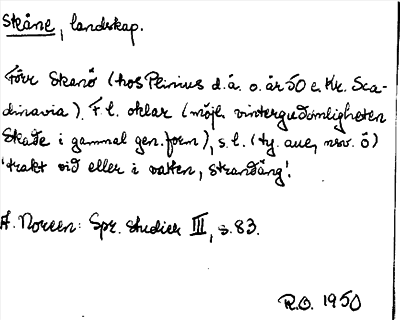 Skåne, landskap.
Förr Skanö (hos Plinius d.ä. o. år 50 e. Kr. Sca-
dinavia). F.l. oklar (möjl. vintergudomligheten
Skade i gammal gen.form), s.l. (ty. aue, nsv. ö)
'trakt vid eller i vatten, strandäng'.
A. Noreen: Spr. studier III, s. 83.
R.O. 1950